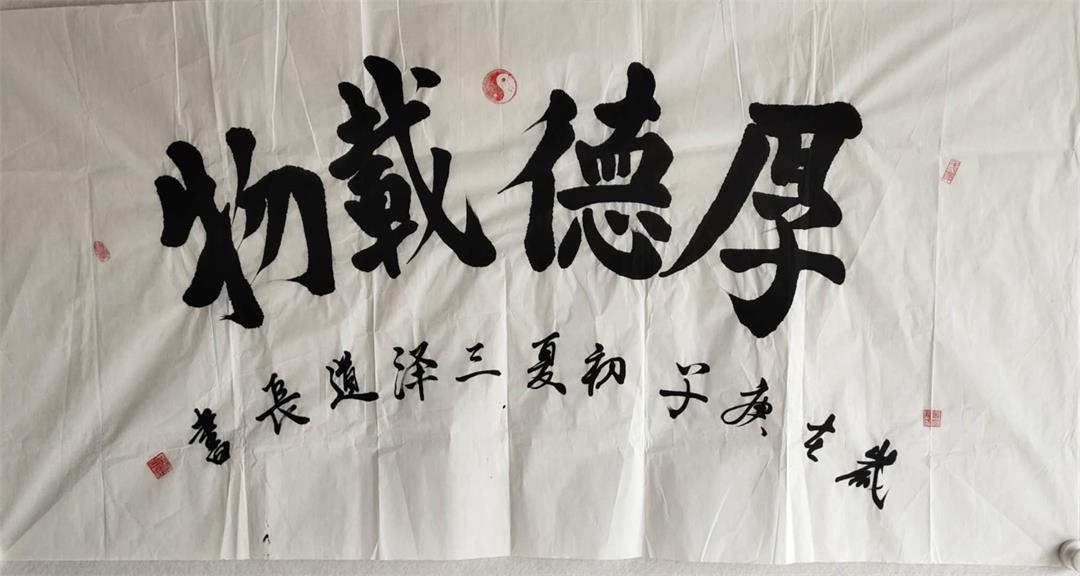 厚德載物
歲在庚子初夏三泽道長書